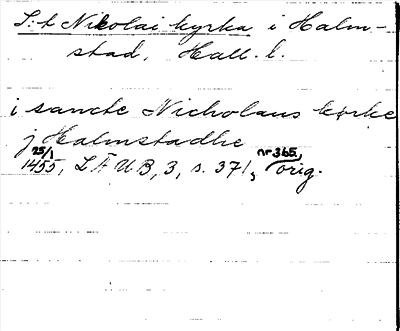 S:t Nikolai kyrka i Halm-
stad, Hall. l.
i sancte Nicholaus kørke
j Halmstadhe
25/1 1455, L Ä U B, 3, s. 371, nr 365, orig.